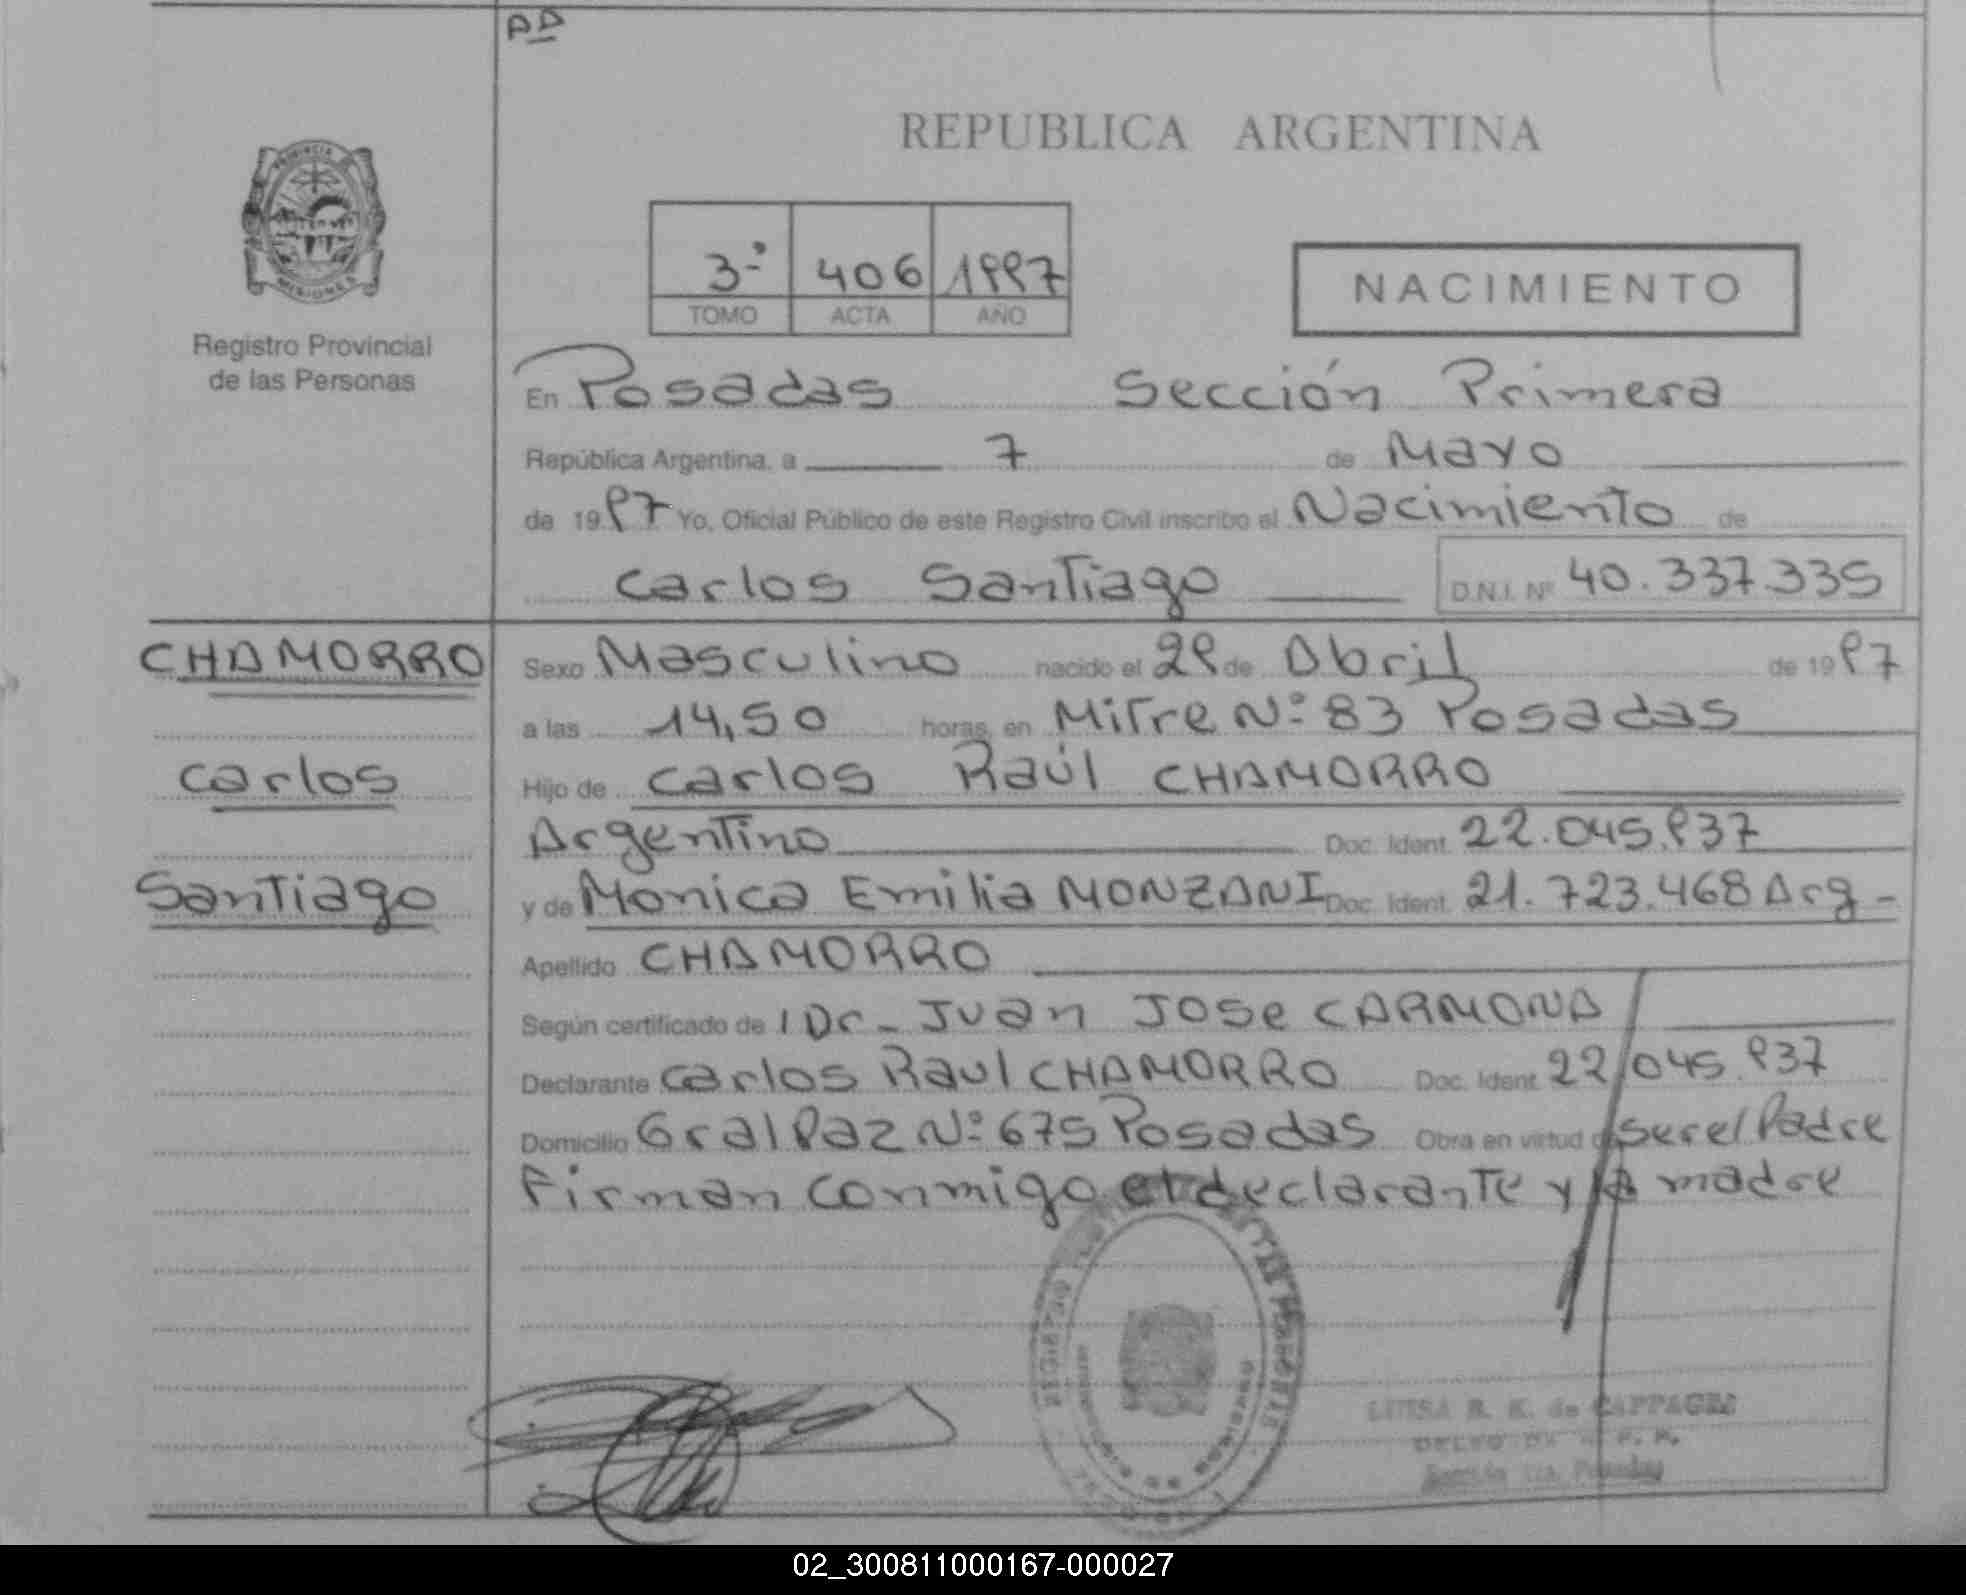 AA
REPUBLICA ARGENTINA
PROVINCIA
MISIONES
Registro Provincial
de las Personas
3º 406 1997
TOMO ACTA AÑO
NACIMIENTO
En Posadas Sección Primera
República Argentina, a 7 de Mayo
de 1997 Yo, Oficial Público de este Registro Civil inscribo el Nacimiento de
Carlos Santiago D.N.I. Nº 40.337.335
CHAMORRO
Carlos
Santiago
Sexo Masculino nacido el 29 de Abril de 1997
a las 14,50 horas, en Mitre Nº 83 Posadas
Hijo de Carlos Raúl CHAMORRO
Argentino Doc. Ident. 22.045.937
y de Monica Emilia MONZANI Doc. Ident. 21.723.468 Arg-
Apellido CHAMORRO
Según certificado de l Dr. Juan Jose CARMONA
Declarante Carlos Raul CHAMORRO Doc. Ident. 22.045.937
Domicilio Gral Paz Nº 675 Posadas Obra en virtud de ser el Padre
Firman conmigo el declarante y la madre
LUISA R. K. de CAPPAGES
Sección 1ra. Posadas
02_300811000167-000027